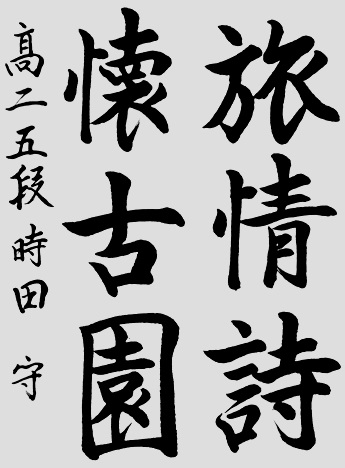 旅情詩
懐古園
高二五段 時田 守